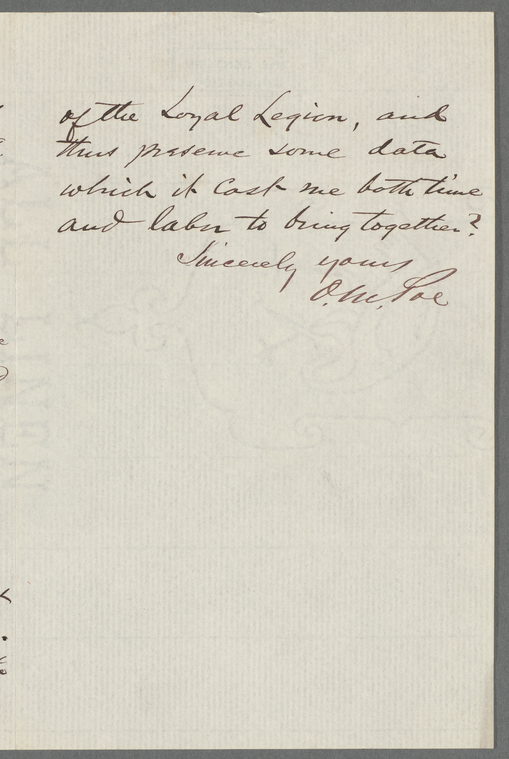 of the Loyal Legion, and
thus preserve some data
which it cost me both time
and labor to bring together?
Sincerely yours
O.M. Poe